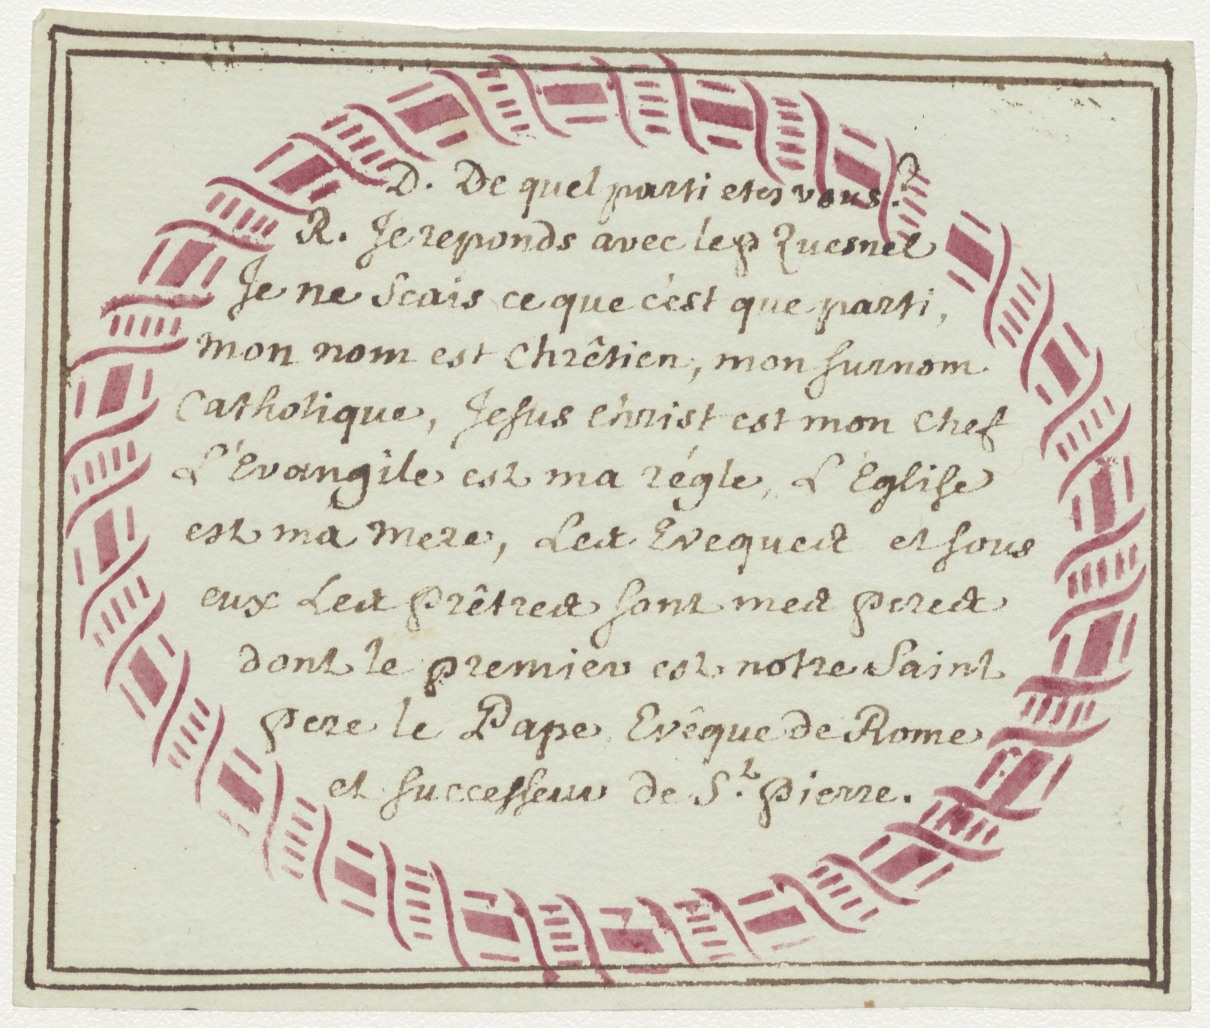 D. De quel parti etes vous?
R. Je reponds avec le p Quesnel
Je ne Scais ce que c'est que parti,
mon nom est Chrêtien, mon surnom
Catholique, Jesus Christ est mon Chef
L'Evangile est ma régle, L'Eglise
est ma mere, Les Eveques et sous
eux Les prêtres sont mes peres
dont le premier est notre Saint
pere le Pape, Evêque de Rome
et successeur de St. pierre.